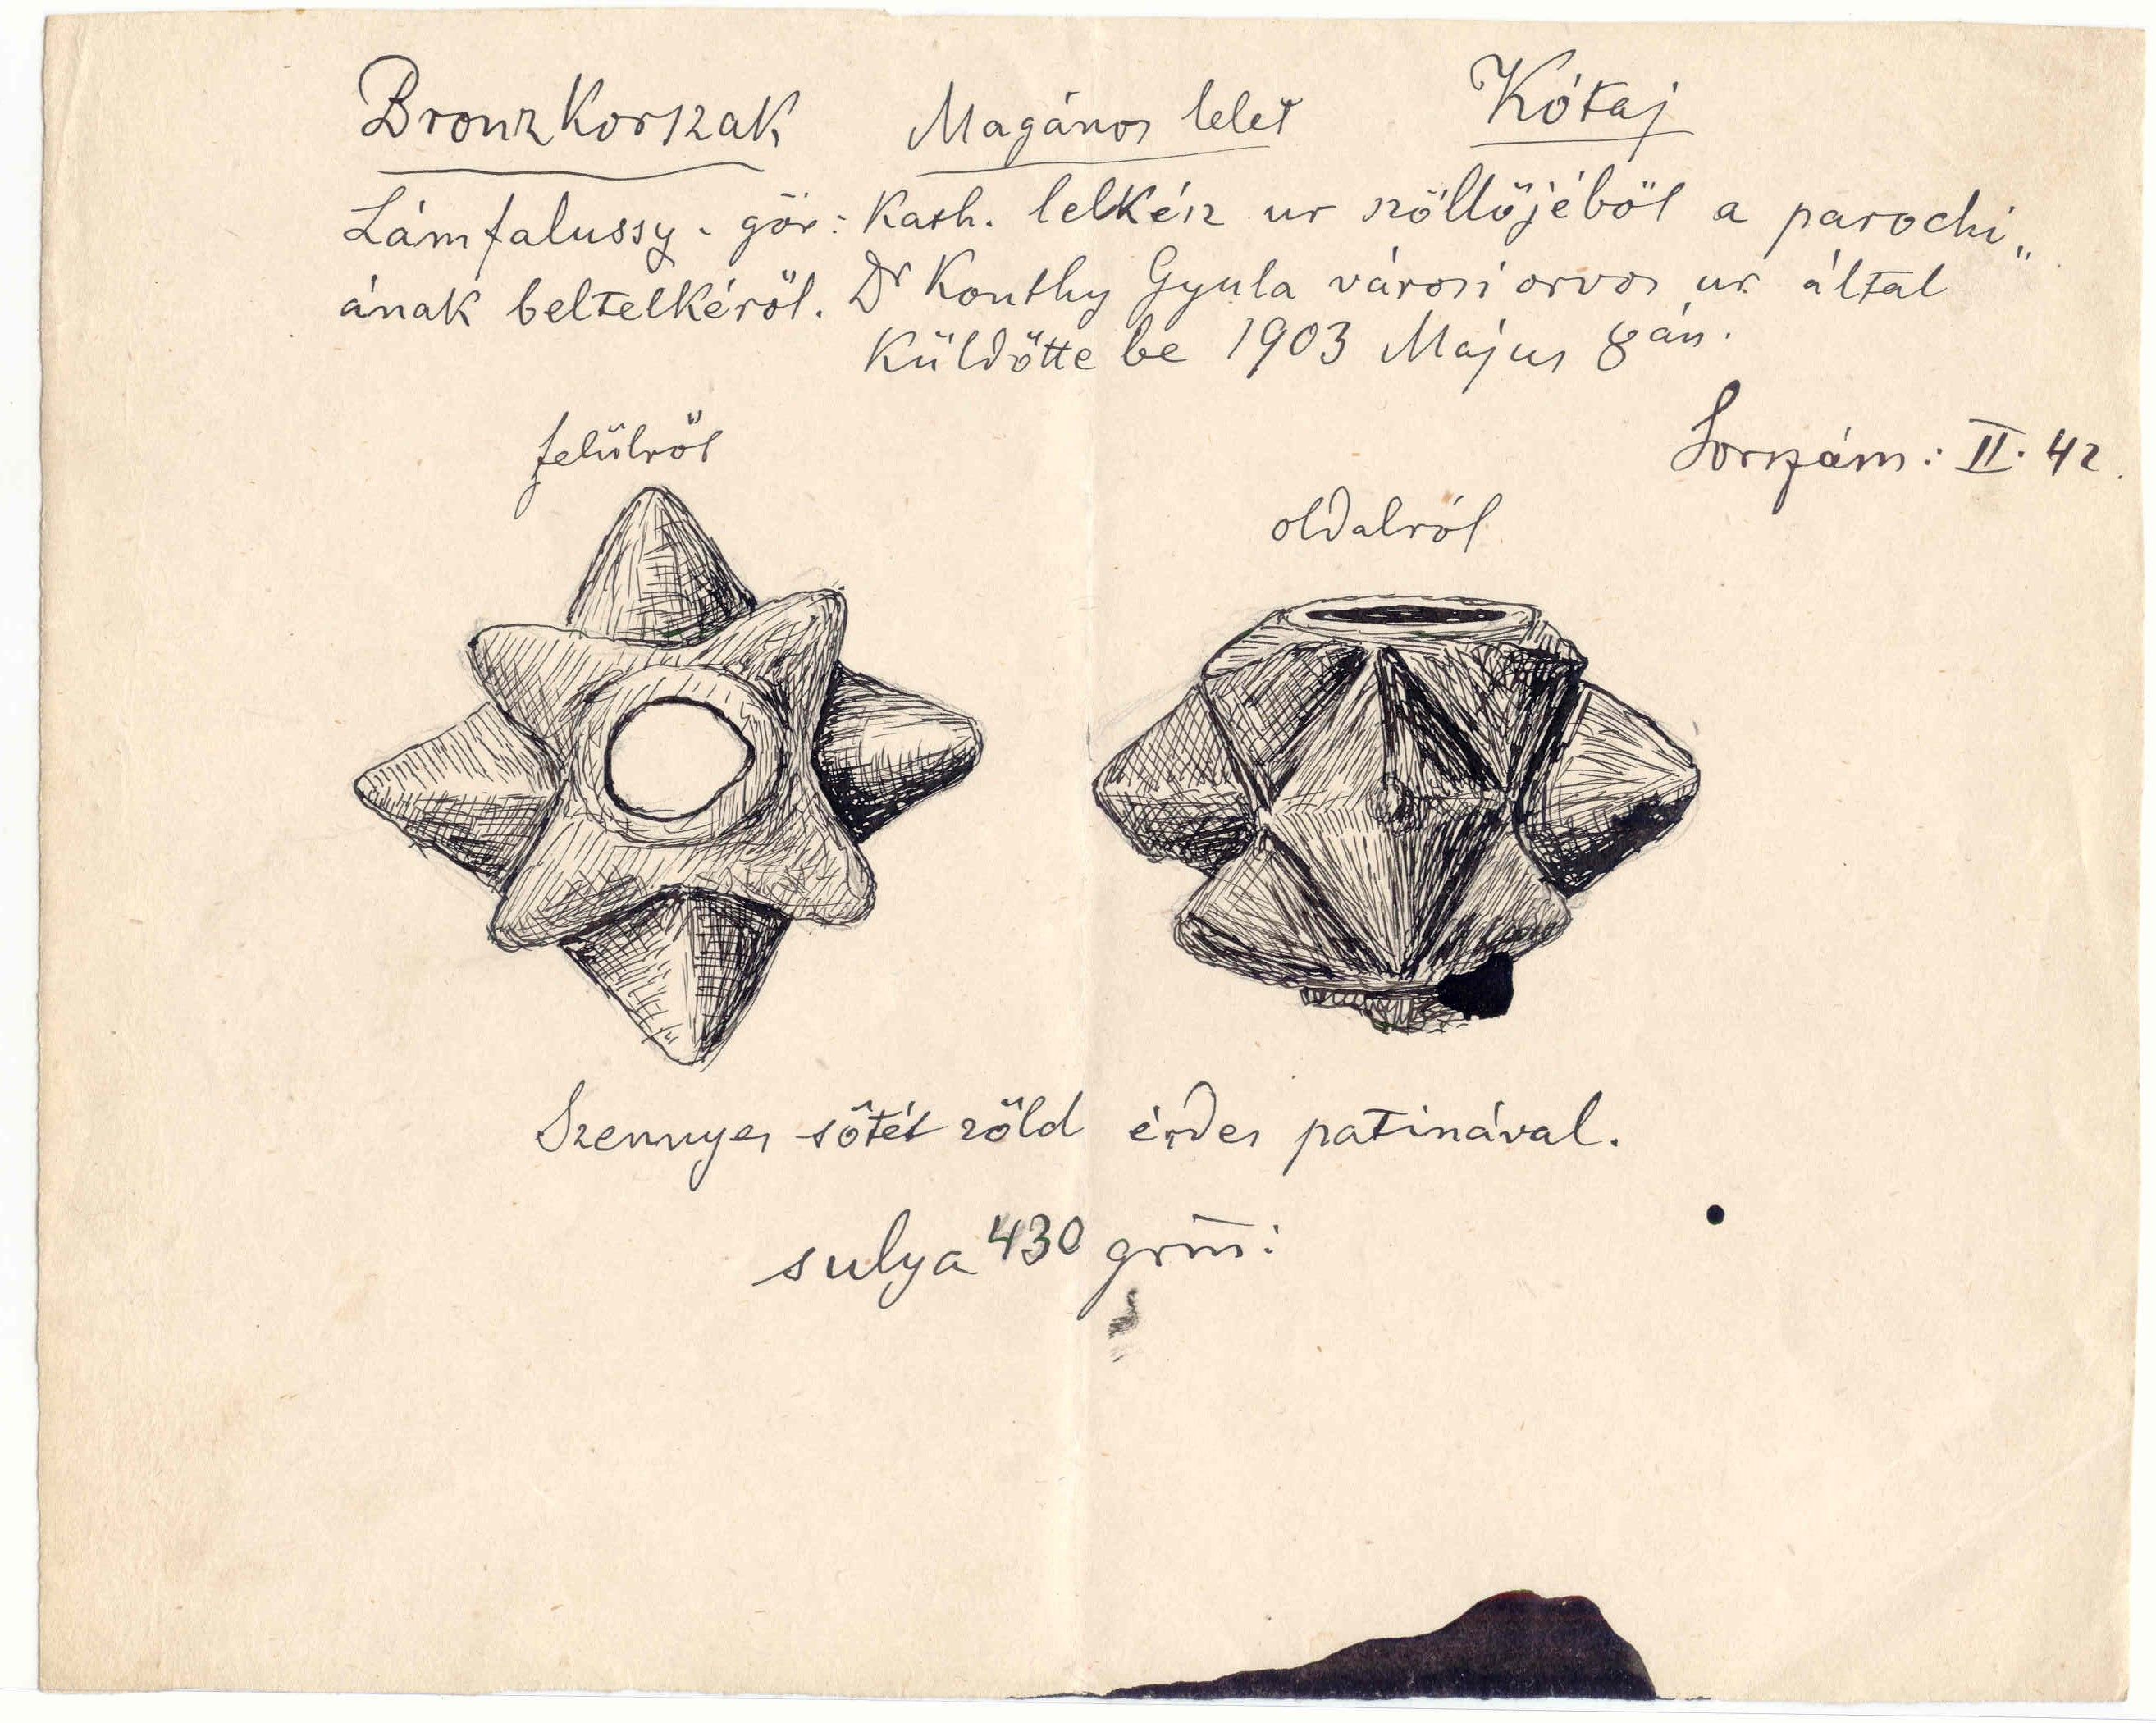 Bronzkorszak Magános lelet Kótaj
Lámfalussy. gör: kath. lelkész ur szőllőjéből a parochi„
ának beltelkéről. Dr Konthy Gyula városi orvos ur által
küldötte be 1903 Május 8án.
Sorszám: II. 42.
felülről
oldalról
Szennyes sötét zöld érdes patinával.
sulya 430 grm: